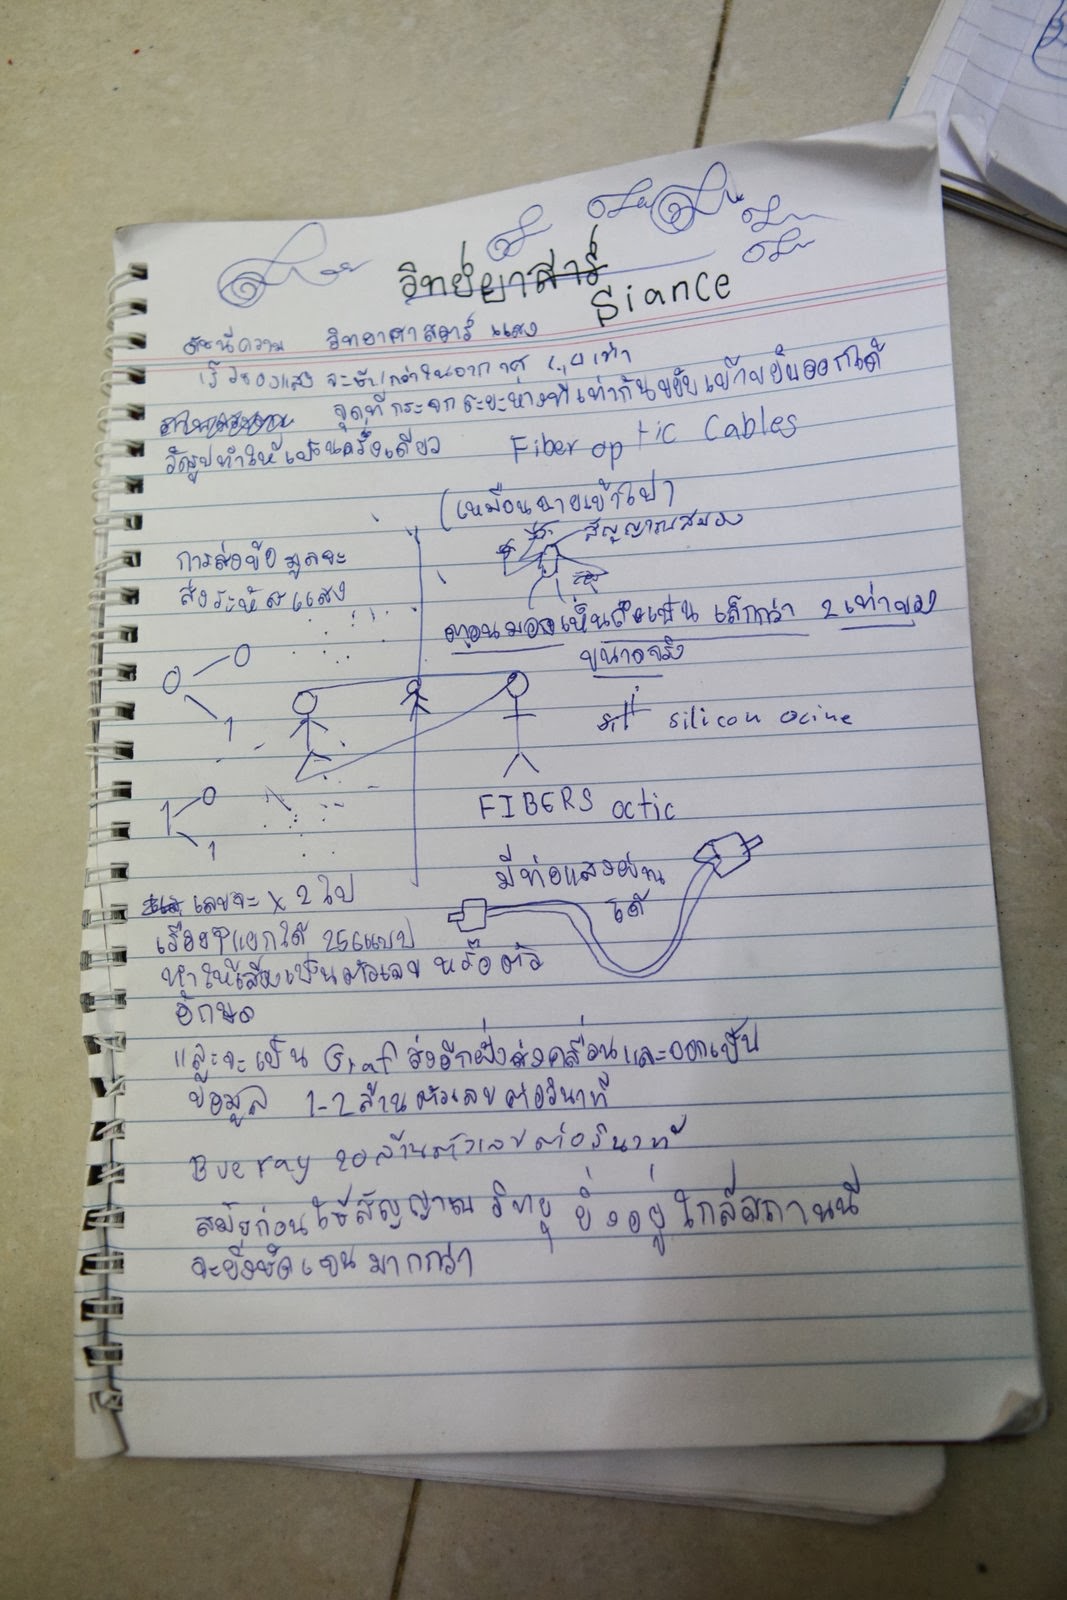 วิทย์ยาสาร์
Siance
ดัชนีความ วิทยาศาสตาร์ แสง
เร็วของแสง จะช้ากว่าในอากาศ เท่า
จุดที่กระจกระยะห่างที่เท่ากันขยับเข้าขยับออกได้
วัดรูปทำให้เป็นครั้งเดียว Fiber op tic Cables
(เหมือนฉายเข้าไป)
สัญญาณสมอง
การส่งข้อมูลจะ
ส่งรหัสแสง
ตอนมองเห็นถึงเป็นเล็กกว่า 2 เท่าของ
ขนาดจริง
0 0
1
silicon ocine
1 0
1
FIBERS octic
มีท่อแสงผ่าน
ได้
เลขจะ x 2 ไป
เรื่อยๆแยกได้ 256แบบ
ทำให้เสียงเป็นตัวเลข หรือตัว
อักษด
และจะเป็น Graf ส่งอีกฝั่งส่งคลื่อนและออกเป็น
ข้อมูล 1-2 ล้านตัวเลขต่อวินาที
Bueray 20 ล้านตัวเลขต่อวินาที
สมัยก่อนใช้สัญญาณ วิทยุ ยิ่งอยู่ใกล้สถานนี
จะยิ่งชัดเจนมากกว่า